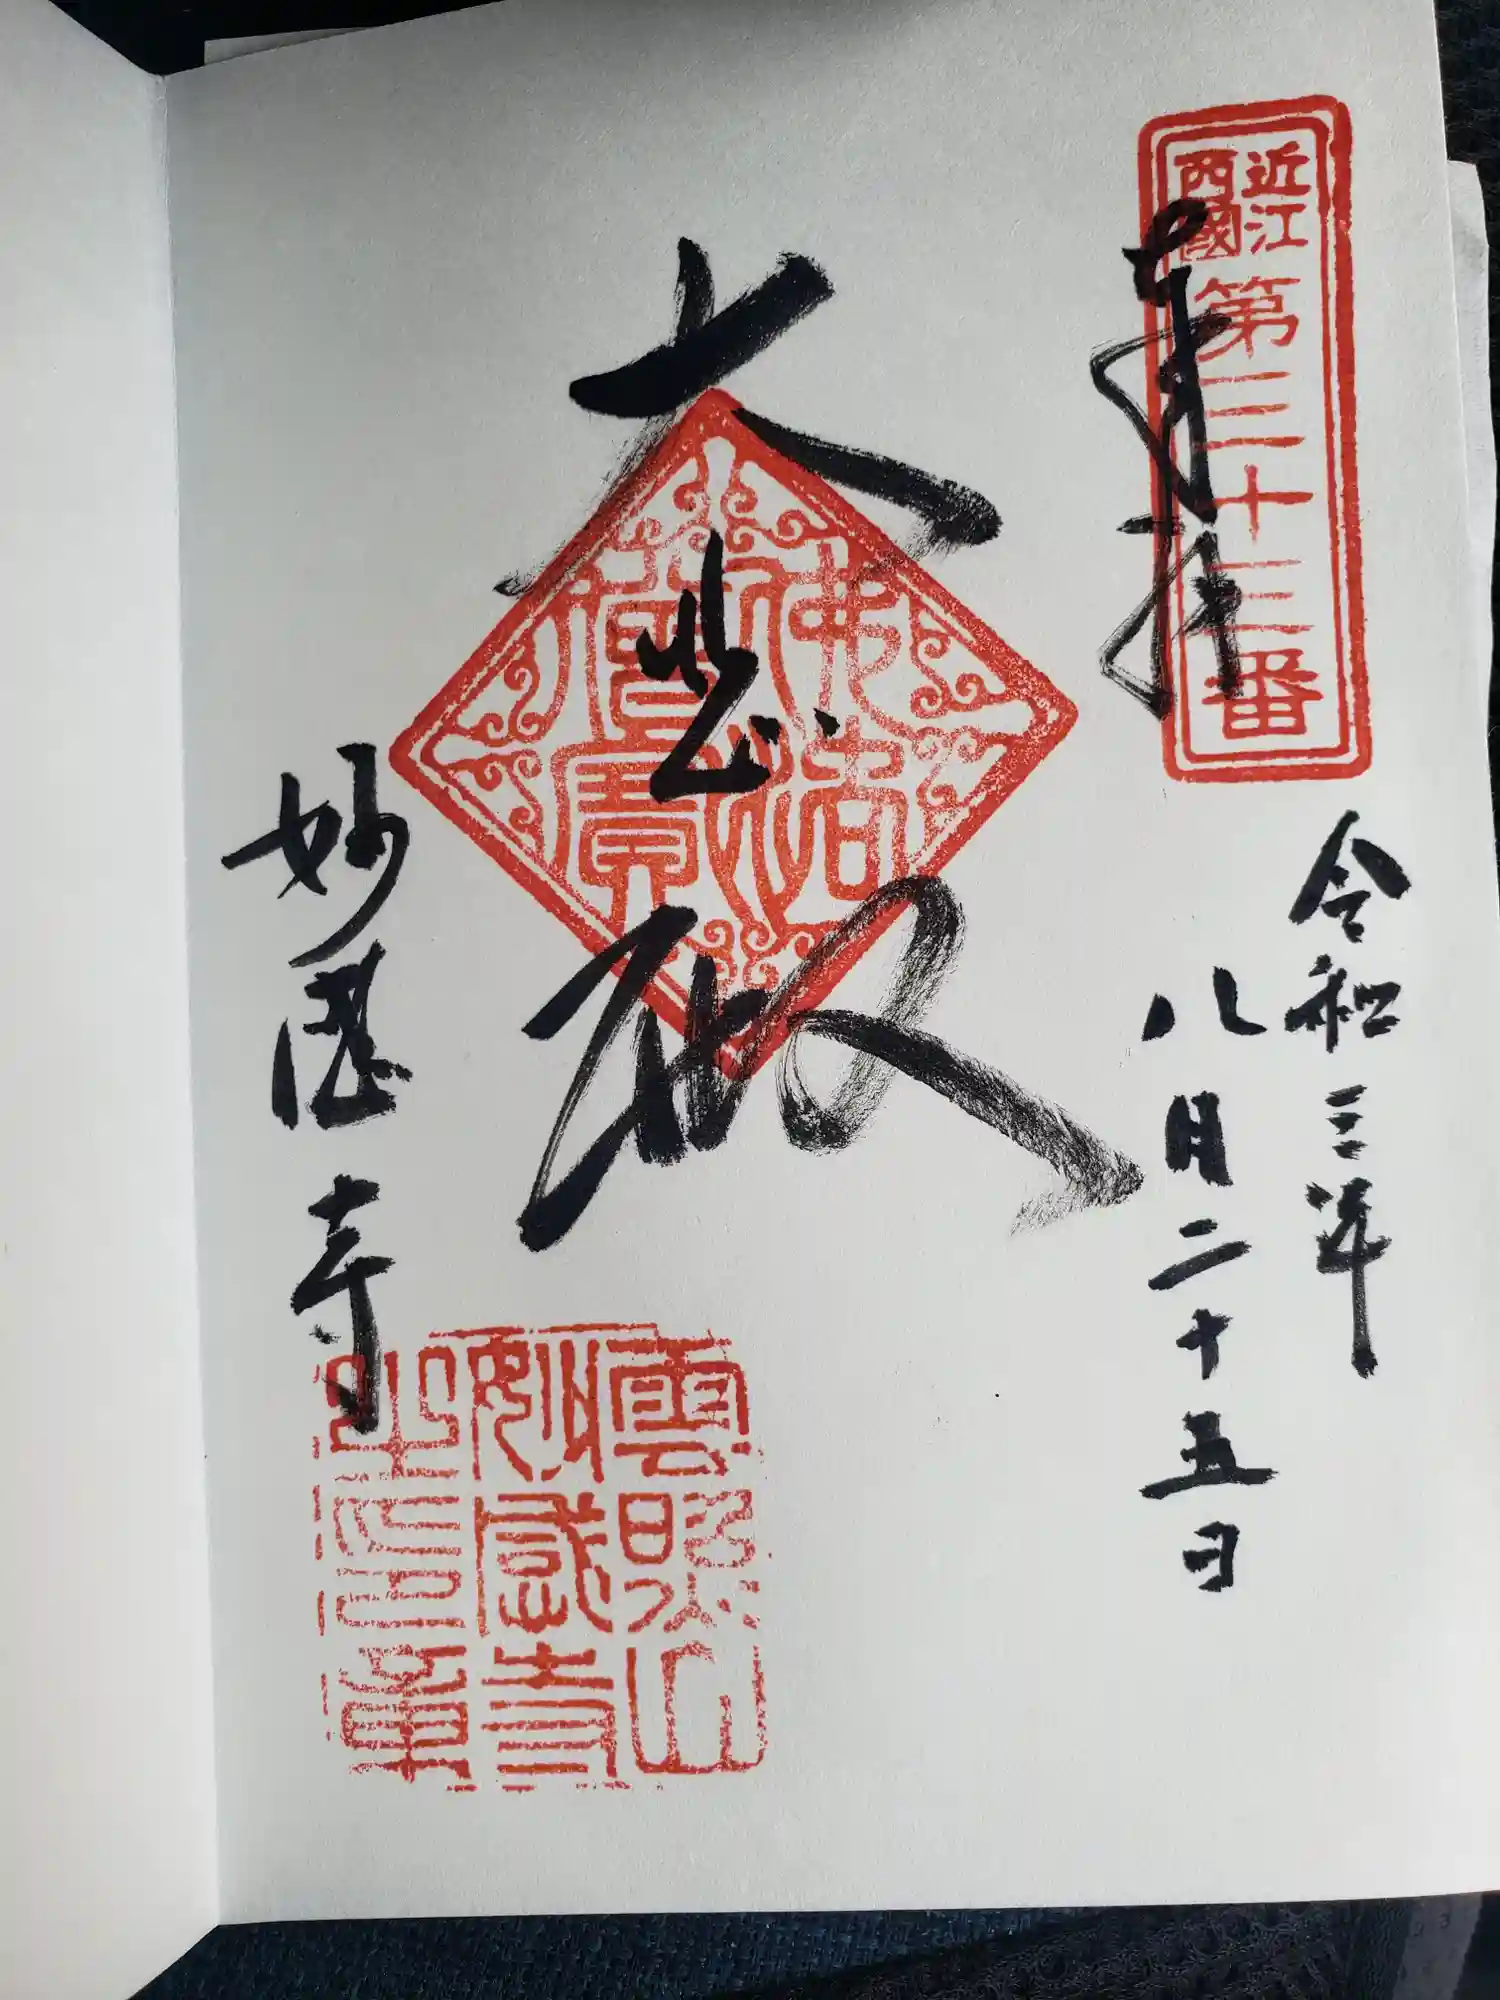 近江
西國
第三十三番
奉拝
令和三年
八月二十五日
大悲殿
佛法
僧寳
妙感寺
雲照山
妙感寺
之印章